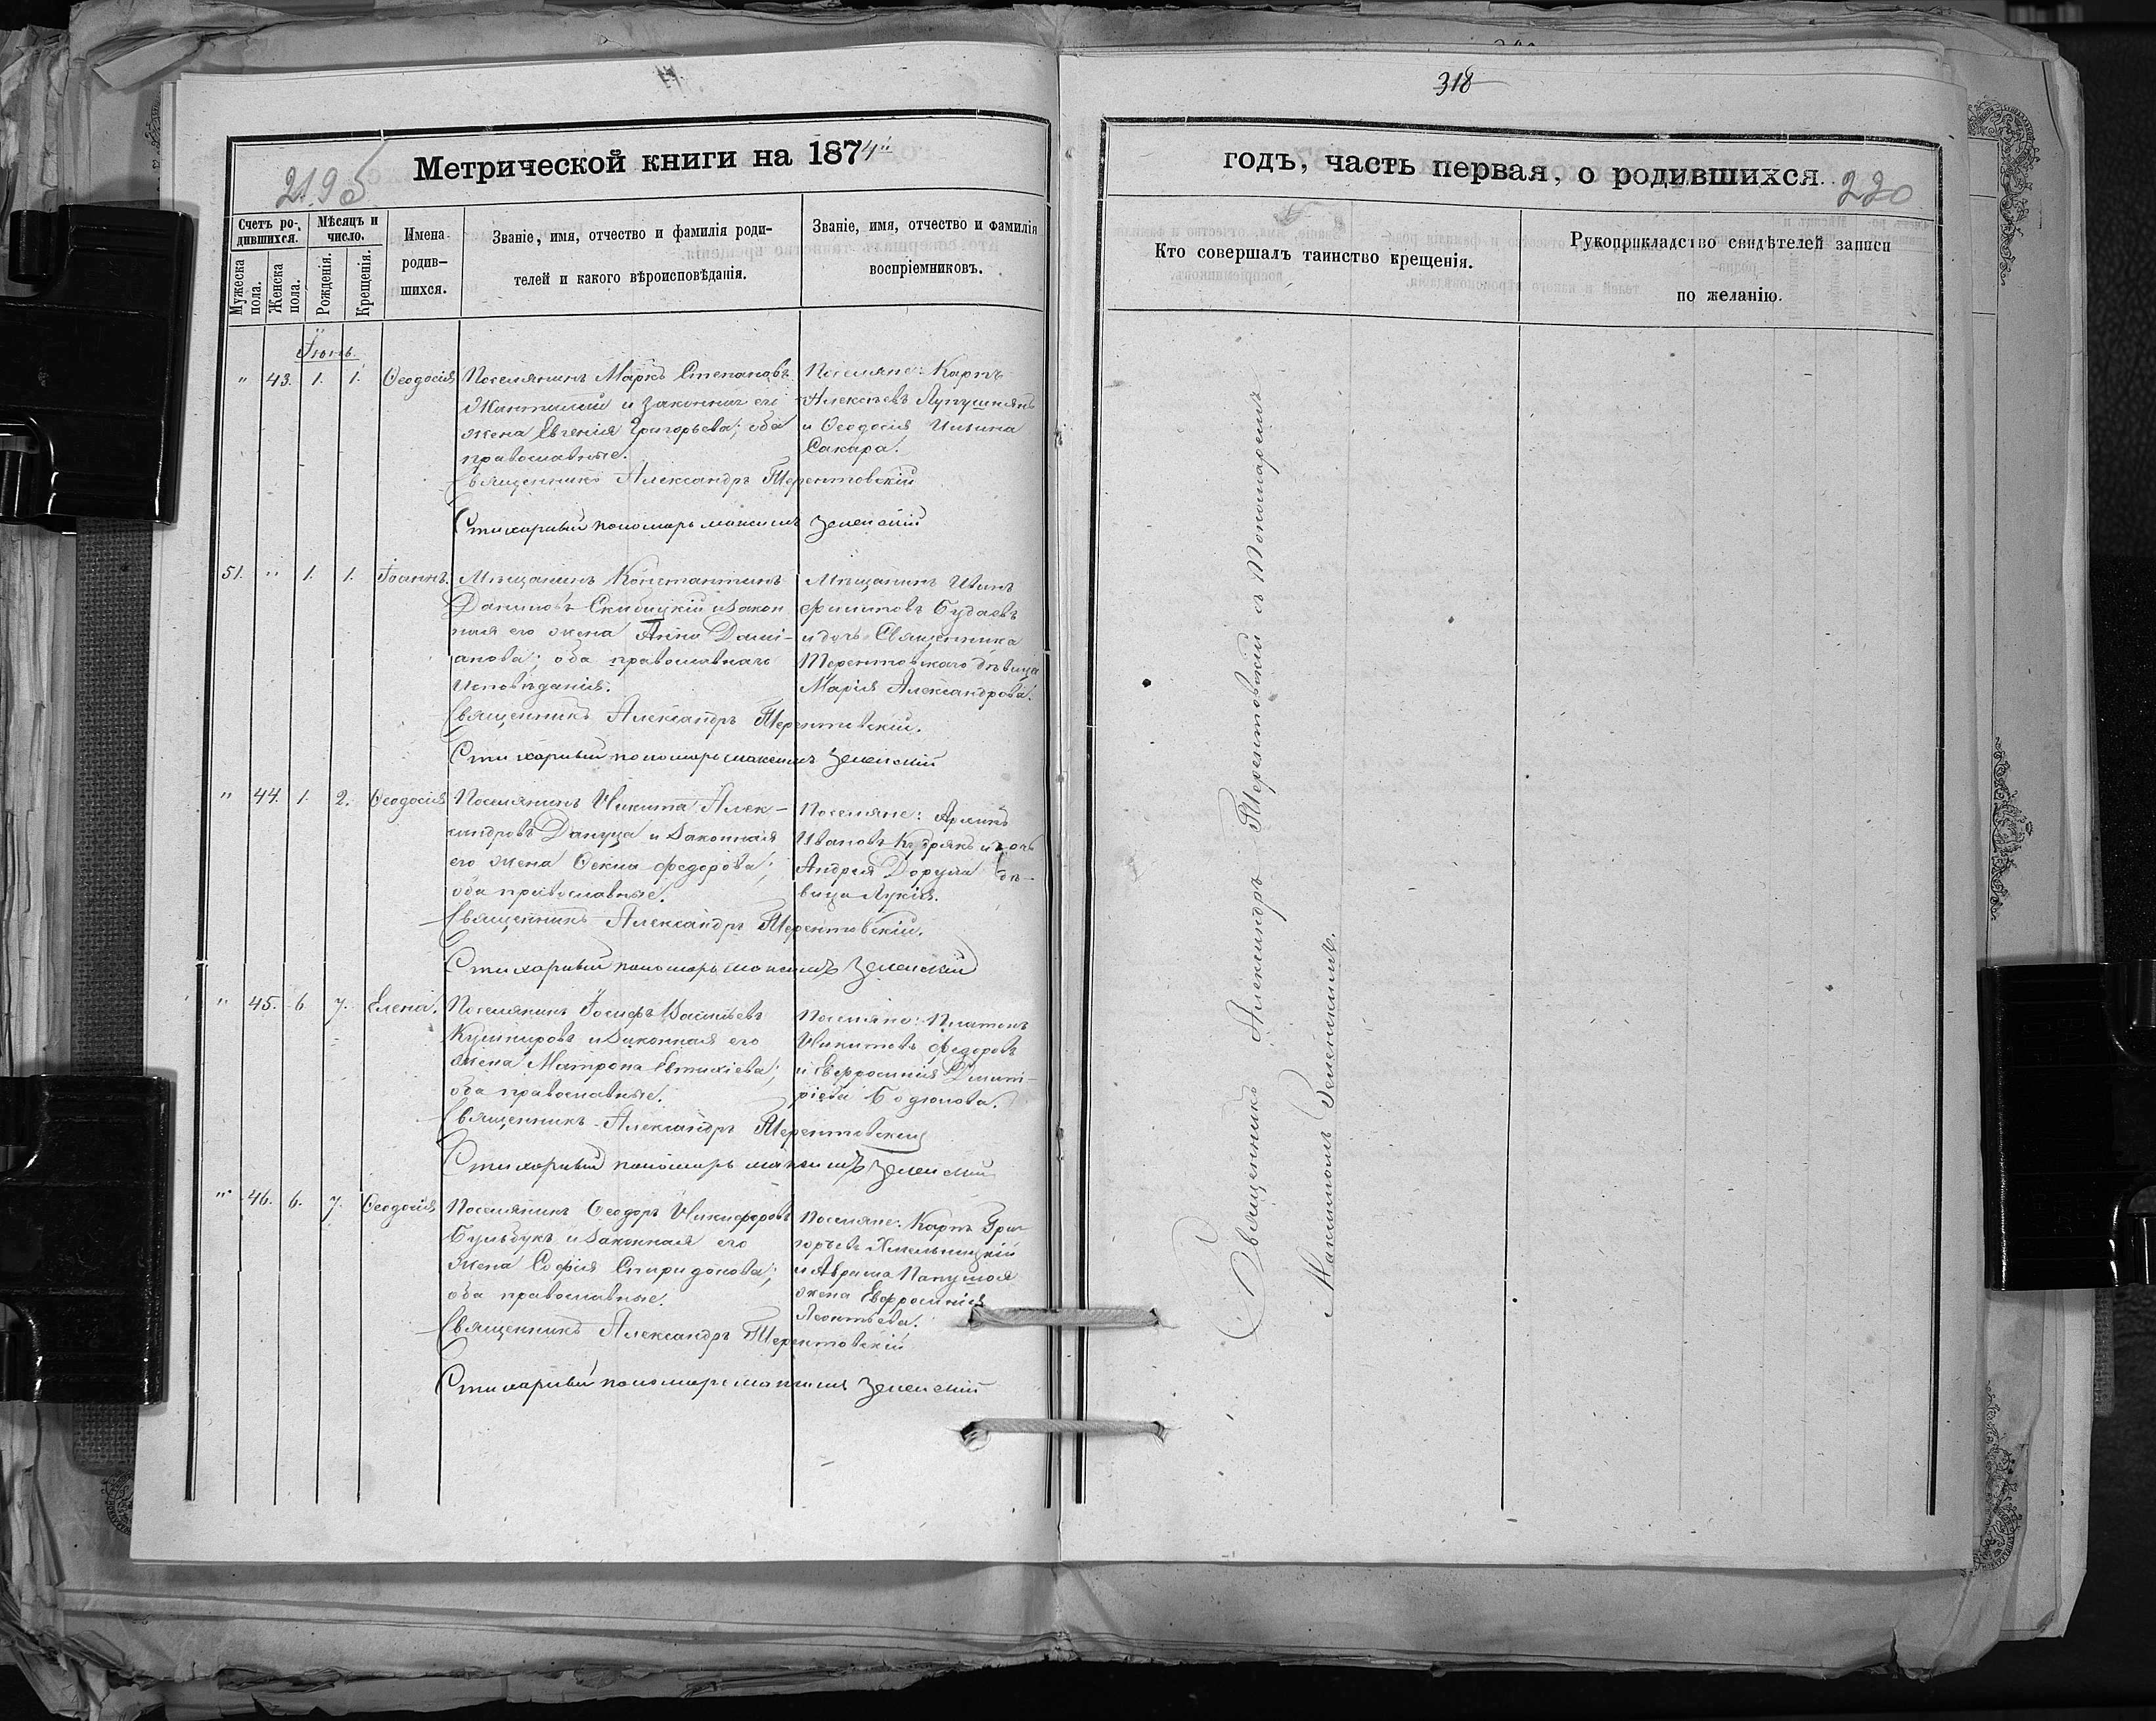 318
Метрической книги на 1874й
годъ, часть первая, о родившихся.
220
Счетъ родившихся.
Мужеска пола.
Женска пола.
Мѣсяцъ и число.
Рожденія.
Крещенія.
Имена родив-
шихся.
Званіе, имя, отчество и фамилія роди-
телей и какого вѣроисповѣданія.
Званіе, имя, отчество и фамилія
воспріемниковъ.
Кто совершалъ таинство крещенія.
Рукоприкладство свидѣтелей записи
по желанію.
Іюнь.
" 43. 1. 1. Ѳеодосія
Поселянинъ Маркъ Степановъ
и законная его
жена Евгенія Григорьева; оба
православные.
Поселяне: Карпъ
Алексѣевъ Лупушнянъ
и Ѳеодосія Ильина
Сакара.
Священникъ Александръ Терентовскій
Стихарный пономарь Максимъ Зеленскій
51. " 1. 1. Іоаннъ.
Мѣщанинъ Константинъ
Даниловъ Скибицкій и закон
ная его жена Анна Дами-
анова; оба православнаго
Исповѣданія.
Мѣщанинъ Иванъ
Филиповъ Будаевъ
и дочь Священника
Терентовскаго дѣвица
Марія Александрова.
Священникъ Александръ Терентовскій.
Стихарный пономарь Максимъ Зеленскій
" 44. 1. 2. Ѳеодосія
Поселянинъ Никита Алек-
сандровъ Дануца и законная
его жена Ѳекла Федорова;
оба православные.
Поселяне:
Ивановъ Кудрякъ и дочь
Андрея Дорула дѣ-
вица Лукія.
Священникъ Александръ Терентовскій.
Стихарный пономарь Максимъ Зеленскій
" 45. 6. 7. Елена.
Поселянинъ Іосифъ Васильевъ
Кушнировъ и законная его
жена Матрона Евтихіева;
оба православные.
Поселяне: Платонъ
Никитовъ Федоровъ
и Евфросинія Димит-
ріева Бодюлова.
Священникъ Александръ Терентовскій
Стихарный пономарь Максимъ Зеленскій
" 46. 6. 7. Ѳеодосія
Поселянинъ Ѳеодоръ Никифоровъ
Бульбукъ и законная его
жена Софія Спиридонова;
оба православные.
Поселяне: Карпъ Гри-
горьевъ Хмельницкій
и Аврама Папушоя
жена Евфросинія
Леонтьева.
Священникъ Александръ Терентовскій
Стихарный пономарь Максимъ Зеленскій
Священникъ Александръ Терентовскій съ Пономаремъ
Максимомъ Зеленскимъ.